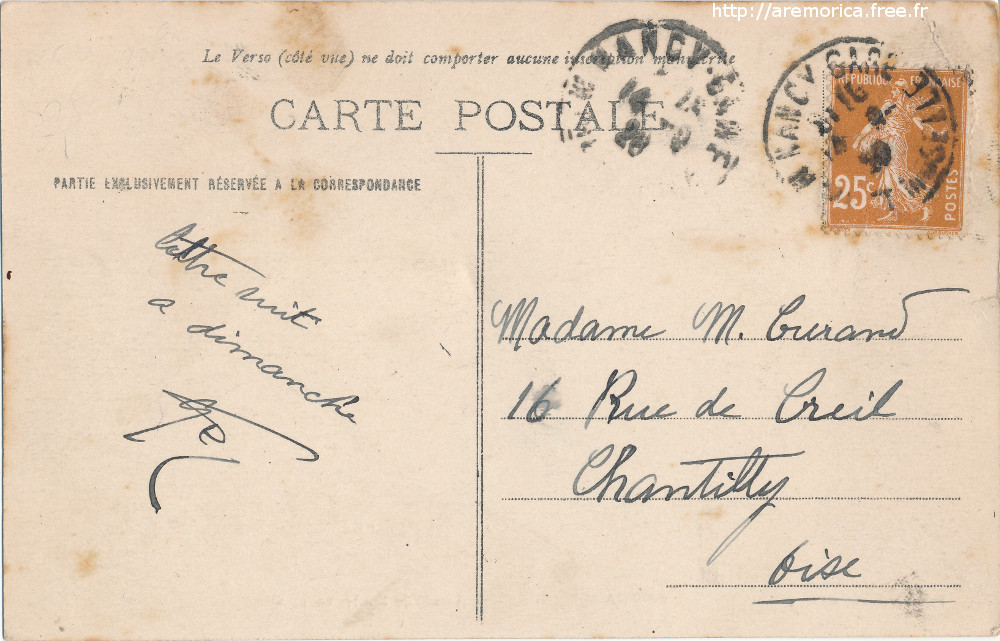 http://aremorica.free.fr
Le Verso (côté vue) ne doit comporter aucune inscription manuscrite
CARTE POSTALE
NANCY-GARE
NANCY GARE
RÉPUBLIQUE FRANÇAISE
25c
POSTES
PARTIE EXCLUSIVEMENT RÉSERVÉE A LA CORRESPONDANCE
lettre suit
a dimanche
Madame M. Curand
16 Rue de Creil
Chantilly
Oise